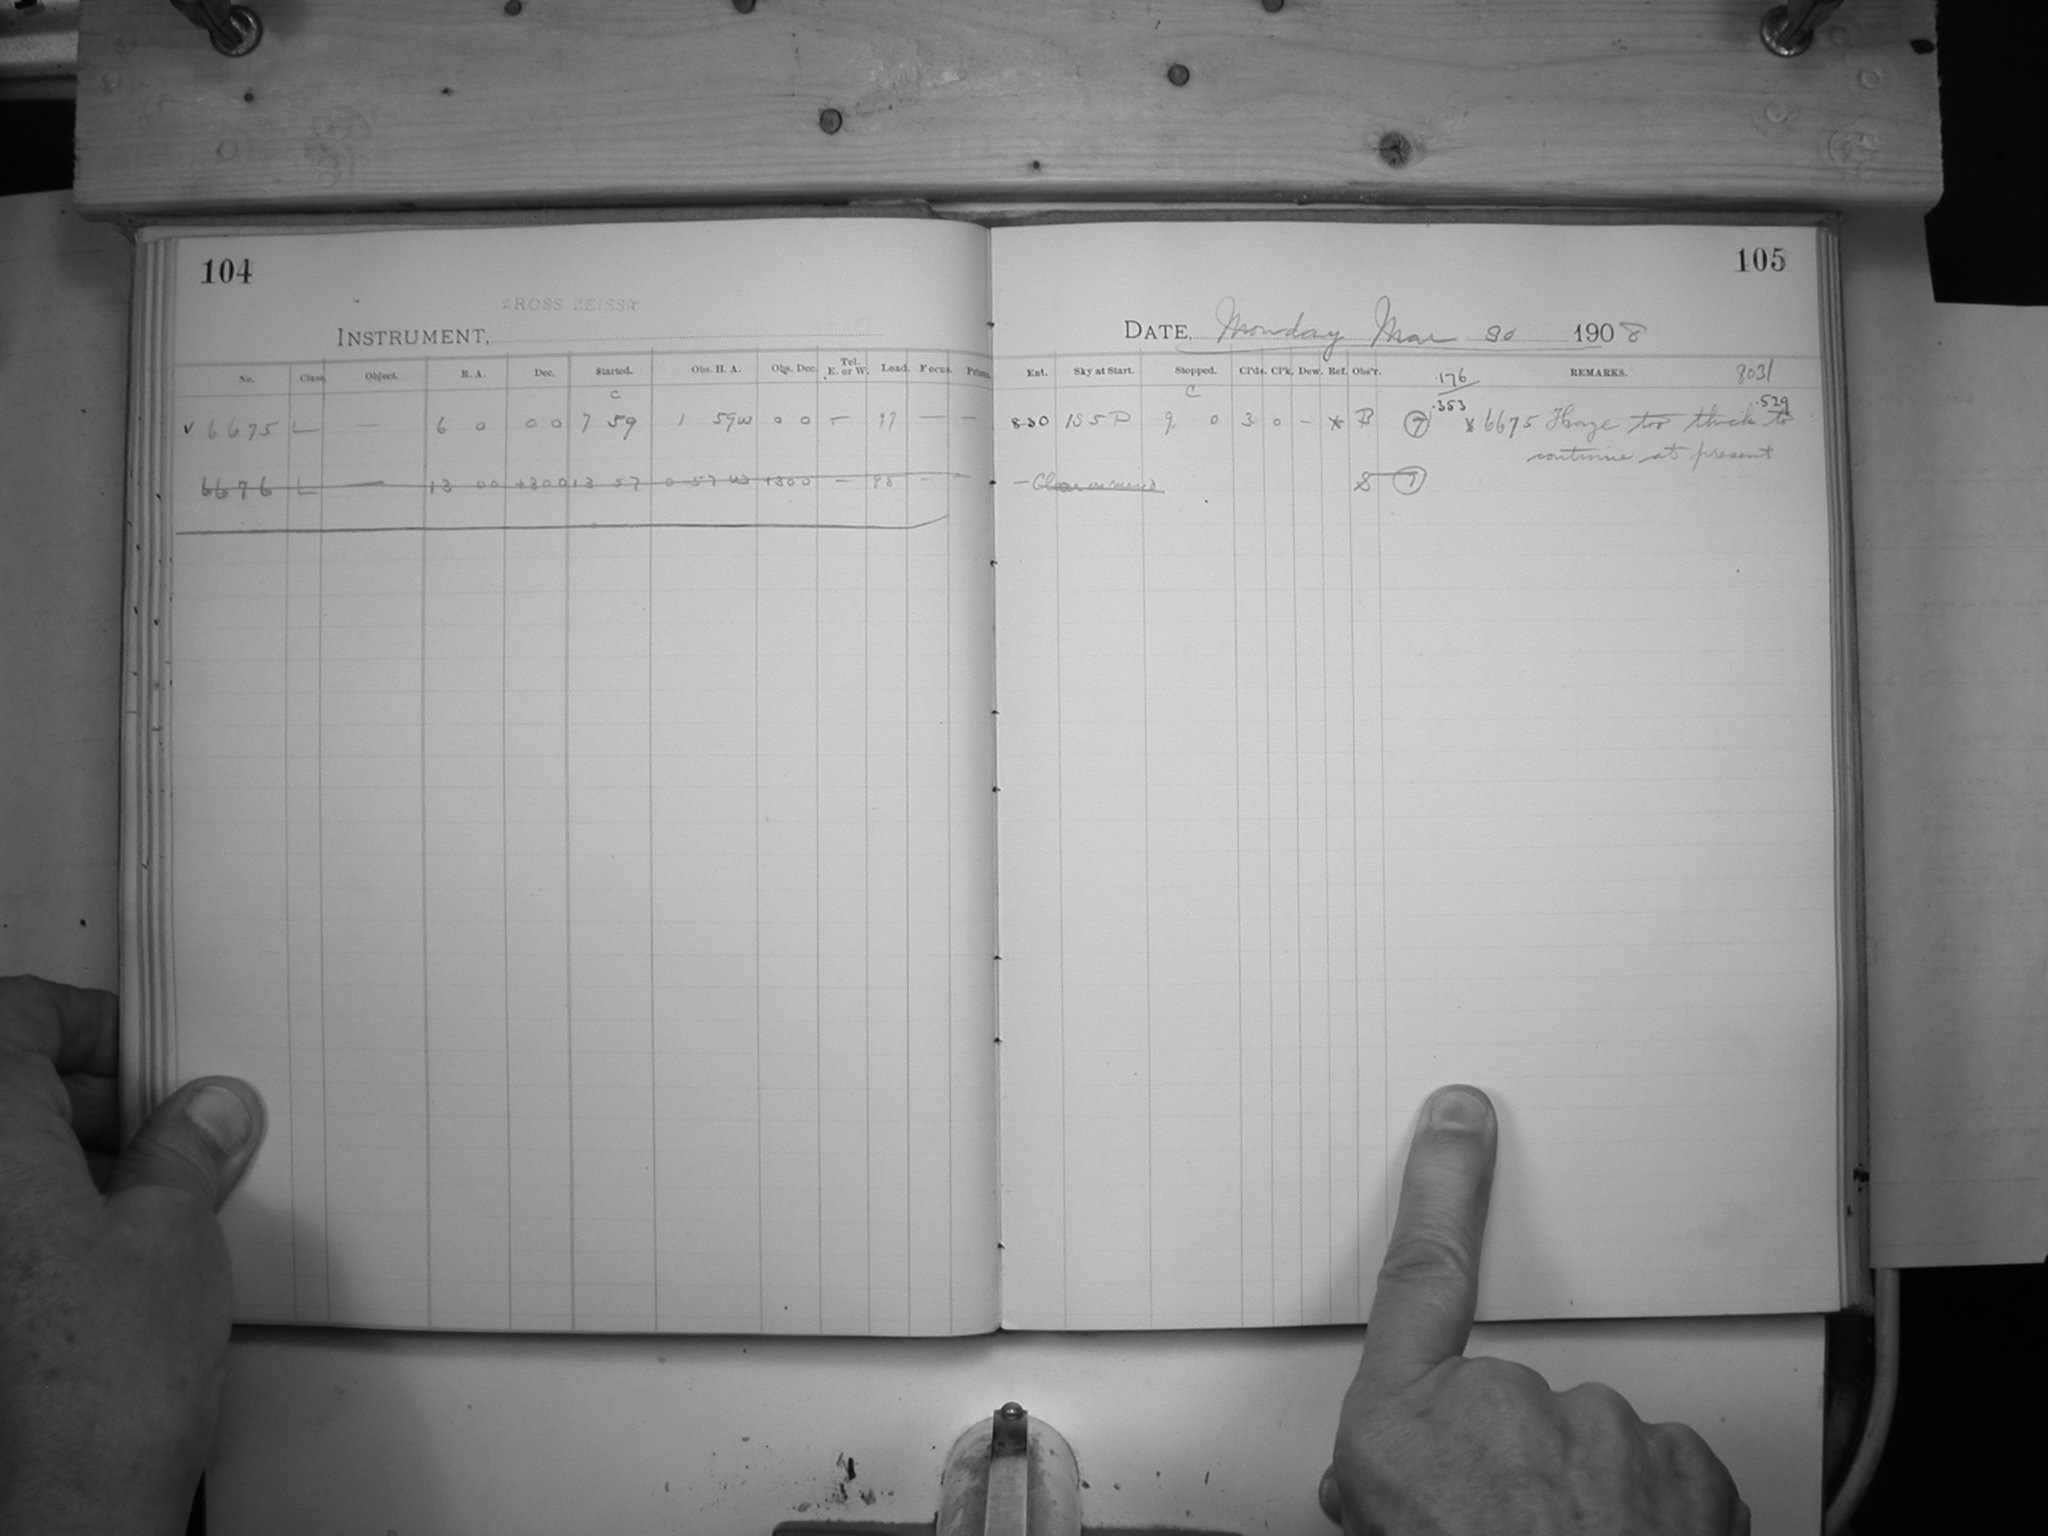 104
☆ROSS ZEISS☆
INSTRUMENT,
No. Class. Object. R. A. Dec. Started. Obs. H. A. Obs. Dec. Tel. E. or W. Load. Focus. Prisms.
c
v 6675 L — 6 0 0 0 7 59 1 59w 0 0 — 97 — —
6676 L — 13 00 +300 13 57 0 57 w +300 — 98 — —
105
DATE, Monday Mar 30 1908
Ent. Sky at Start. Stopped. Cl'ds. Cl'k. Dew. Ref. Obs'r. REMARKS. 8031
.176
c
.353 .529
830 9 0 3 0 — * B * 6675 Haze too thick to
continue at present
S